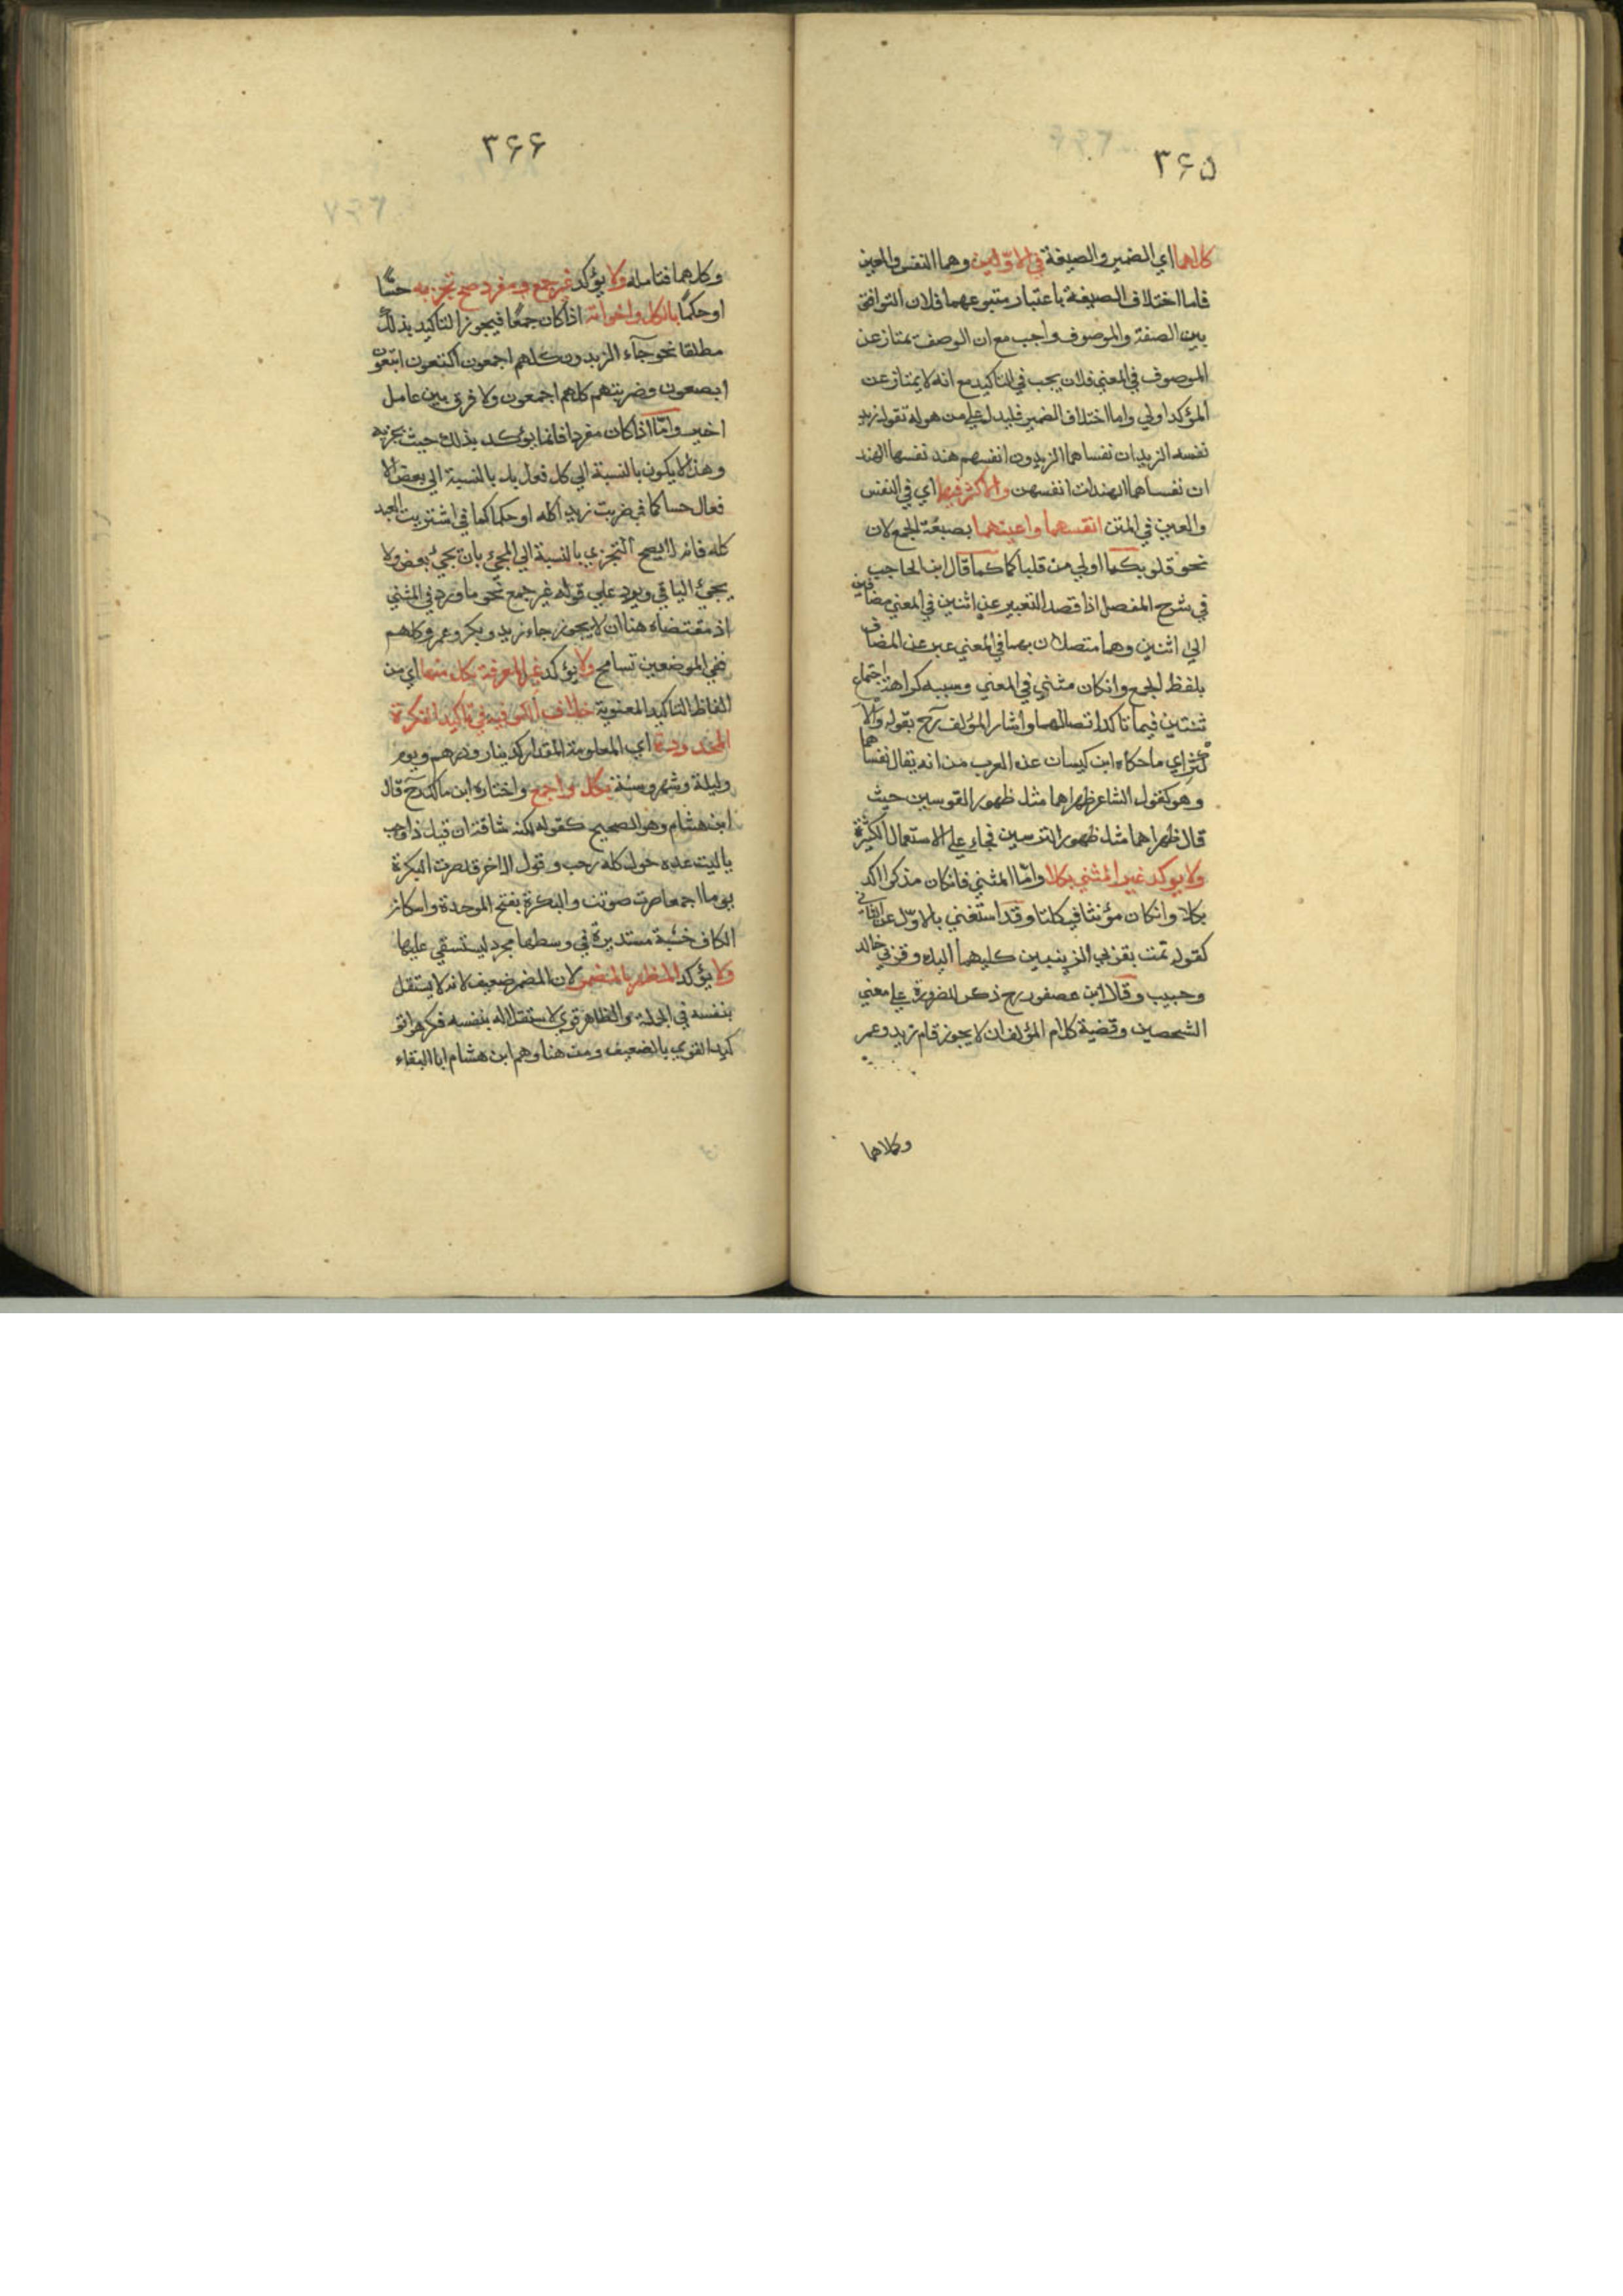 ٣۶۵
كلاهما اي الضمير والصيغة في الاوّلين وهما النفس والعين
فاما اختلاف الصيغة باعتبار متبوعهما فلان التوافق
بين الصفة والموصوف واجب مع ان الوصف يمتاز عن
الموصوف في المعني فلان يجب في التاكيد مع انه لا يمتاز عن
المؤكد اولي واما اختلاف الضمير فليدل علي من هو له تقول زيد
نفسه الزيدان نفساهما الزيدون انفسهم هند نفسها الهند
ان نفساهما الهندات انفسهن والاكثر فيهما اي في النفس
والعين في المثن انفسهما واعينهما بصيغة الجمع لان
نحو قلوبكما اولي من قلباكما كما قال ابن الحاجب
في شرح المفصل اذا قصد التعبير عن اثنين في المعني مضافين
الي اثنين وهما متصلان بهما في المعني عبر عن المضاف
بلفظ الجمع وانكان مثني في المعني وسببه كراهة اجتماع
تثنتين فيما تاكد اتصالهما واشار المؤلف رح بقوله والا
كثر اي ما حكاه ابن كيسان عن العرب من انه يقال نفساهما
وهو كقول الشاعر ظهراهما مثل ظهور القوسين حيث
قال ظهراهما مثل ظهور الترسين فجاء علي الاستعمال الكثيرة
ولا يوكد غير المثني بكلا وامّا المثني فانكان مذكرا اكد
بكلا وانكان مؤنثا فبكلتا وقد استغني بالاوّل عن الثاني
كقوله تمت بقربي الزينبين كليهما اليك وقربي خالد
وحبيب وقال ابن عصفور رح ذكر للضرورة علي معني
الشخصين وقضية كلام المؤلف ان لا يجوز قام زيد وعمر
وكلاهما
٣۶۶
وكلاهما فتامله ولا يؤكد غير جمع ومفرد صح تجزيه حسّا
او حكمًا بالكل واخواته اذا كان جمعًا فيجوز التاكيد بذلك
مطلقا نحو جآء الزيدون كلهم اجمعون اكتعون ابتعون
ابصعون وضربتهم كلهم اجمعون ولا فرق بين عامل
اخر وامّا اذا كان مفردا فانما يؤكد بذلك حيث تجزيه
وهذا لا يكون بالنسبة الي كل فعل بل بالنسبة الي بعض الا
فعال حسا كما في ضربت زيد اكله او حكما كما في اشتريت العبد
كله فانه لا يصح التجزي بالنسبة الي المجئ بان يجئ بعض ولا
يجئ الباقي ويرد علي قوله غير جمع نحو ما ورد في المثني
اذ مقتضاه هنا ان لا يجوز جاء زيد وبكر وعمر وكلهم
ففي الموضعين تسامح ولا يؤكد غير المعرفة بكل منهما اي من
الفاظ التاكيد المعنوية خلاف لكوفيه في تاكيد النكرة
المحدودة اي المعلومة المقدار كدينار ودرهم ويوم
وليلة وشهر وسنة بكل واجمع واختاره ابن مالك رح قال
ابن هشام وهو الصحيح كقوله لكنه شاقه ان قيل ذا رجب
ياليت عدة حول كله رجب وقول الاخر قد صرت البكرة
يوما اجمعا صرت صوتت والبكرة بفتح الموحدة واسكان
الكاف خشبة مستديرة في وسطها مجرد ليستسقي عليها
ولا يؤكد المظهر بالمضمر لان المضمر ضعيف لانه لا يستقل
بنفسه في الجملة والظاهر قوي لاستقلاله بنفسه فكرهوا تو
كيد القوي بالضعيف ومن هنا وهم ابن هشام ابا البقاء